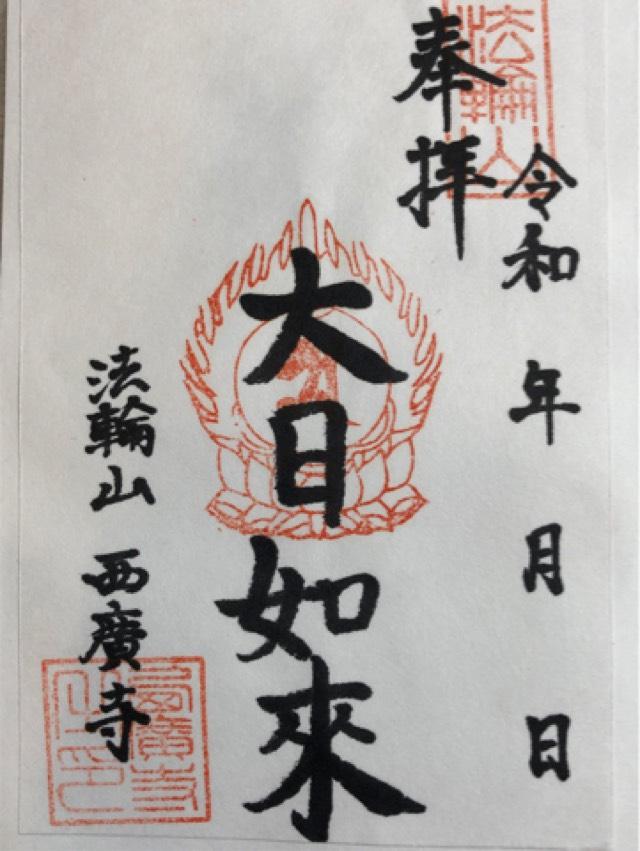 法輪山
奉拝
令和 年 月 日
大日如來
法輪山 西廣寺
西廣寺
之印